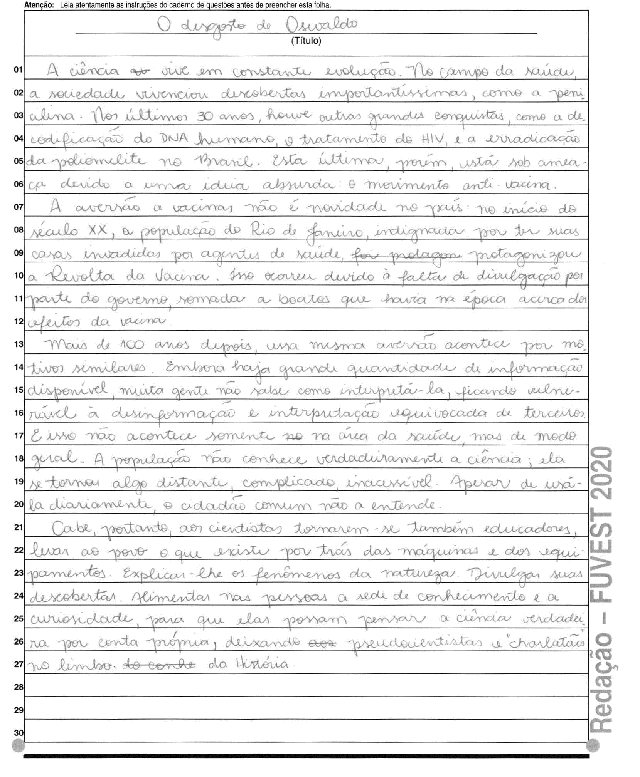 Atenção: Leia atentamente as instruções do caderno de questões antes de preencher esta folha.
O desgosto de Oswaldo
(Título)
01 A ciência ao vive em constante evolução. No campo da saúde,
02 a sociedade vivenciou descobertas importantíssimas, como a peni-
03 cilina. Nos últimos 30 anos, houve outras grandes conquistas, como a de-
04 codificação do DNA humano, o tratamento do HIV, e a erradicação
05 da poliomelite no Brasil. Esta última, porém, estás sob amea-
06 ça devido a uma ideia absurda: o movimento anti-vacina.
07 A aversão a vacinas não é novidade no país: no início do
08 século XX, a população do Rio de Janeiro, indignada por ter suas
09 casas invadidas por agentes de saúde, for protagon protagonizou
10 a Revolta da Vacina. Isso ocorreu devido à falta de divulgação por
11 parte do governo, somada a boatos que havia na época acerca dos
12 efeitos da vacina.
13 Mais de 100 anos depois, essa mesma aversão acontece por mo-
14 tivos similares. Embora haja grande quantidade de informação
15 disponível, muita gente não sabe como interpretá-la, ficando vulne-
16 rável à desinformação e interpretação equivocada de terceiros.
17 E isso não acontece somente no na área da saúde, mas de modo
18 geral. A população não conhece verdadeiramente a ciência; ela
19 se tornou algo distante, complicado, inacessível. Apesar de usá-
20 la diariamente, o cidadão comum não a entende.
21 Cabe, portanto, aos cientistas tornarem-se também educadores,
22 levar ao povo o que existe por trás das máquinas e dos equi-
23 pamentos. Explicar-lhe os fenômenos da natureza. Divulgar suas
24 descobertas. Alimentar nas pessoas a sede de conhecimento e a
25 curiosidade, para que elas possam pensar a ciência verdadei-
26 ra por conta própria, deixando aos pseudocientistas e "charlatães"
27 no limbo do conhe da História.
28
29
30
Redação – FUVEST 2020